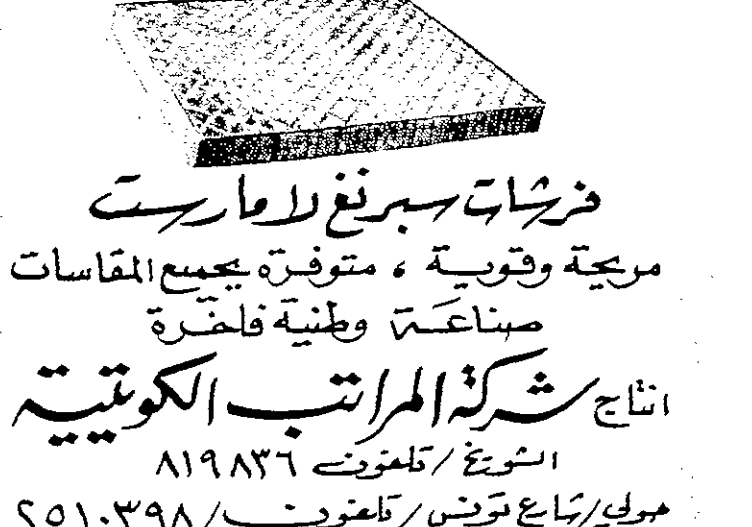 فرشات سبرنغ لامارست
مريحة وقوية ، متوفرة بجميع المقاسات
صناعة وطنية فاخرة
انتاج شركة المراتب الكويتية
الشويخ / تلفون ٨١٩٨٣٦
حولي / شارع تونس / تلفون / ٢٥١٠٣٩٨